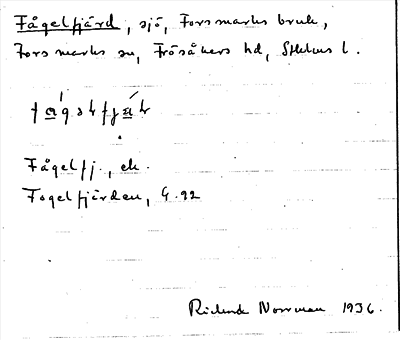 Fågelfjärd, sjö, Forsmarks bruk,
Forsmarks sn, Frösåkers hd, Sthlms l.
Fågelfj., ek.
Fogelfjärden, G. 92
Richard Norrman 1936.